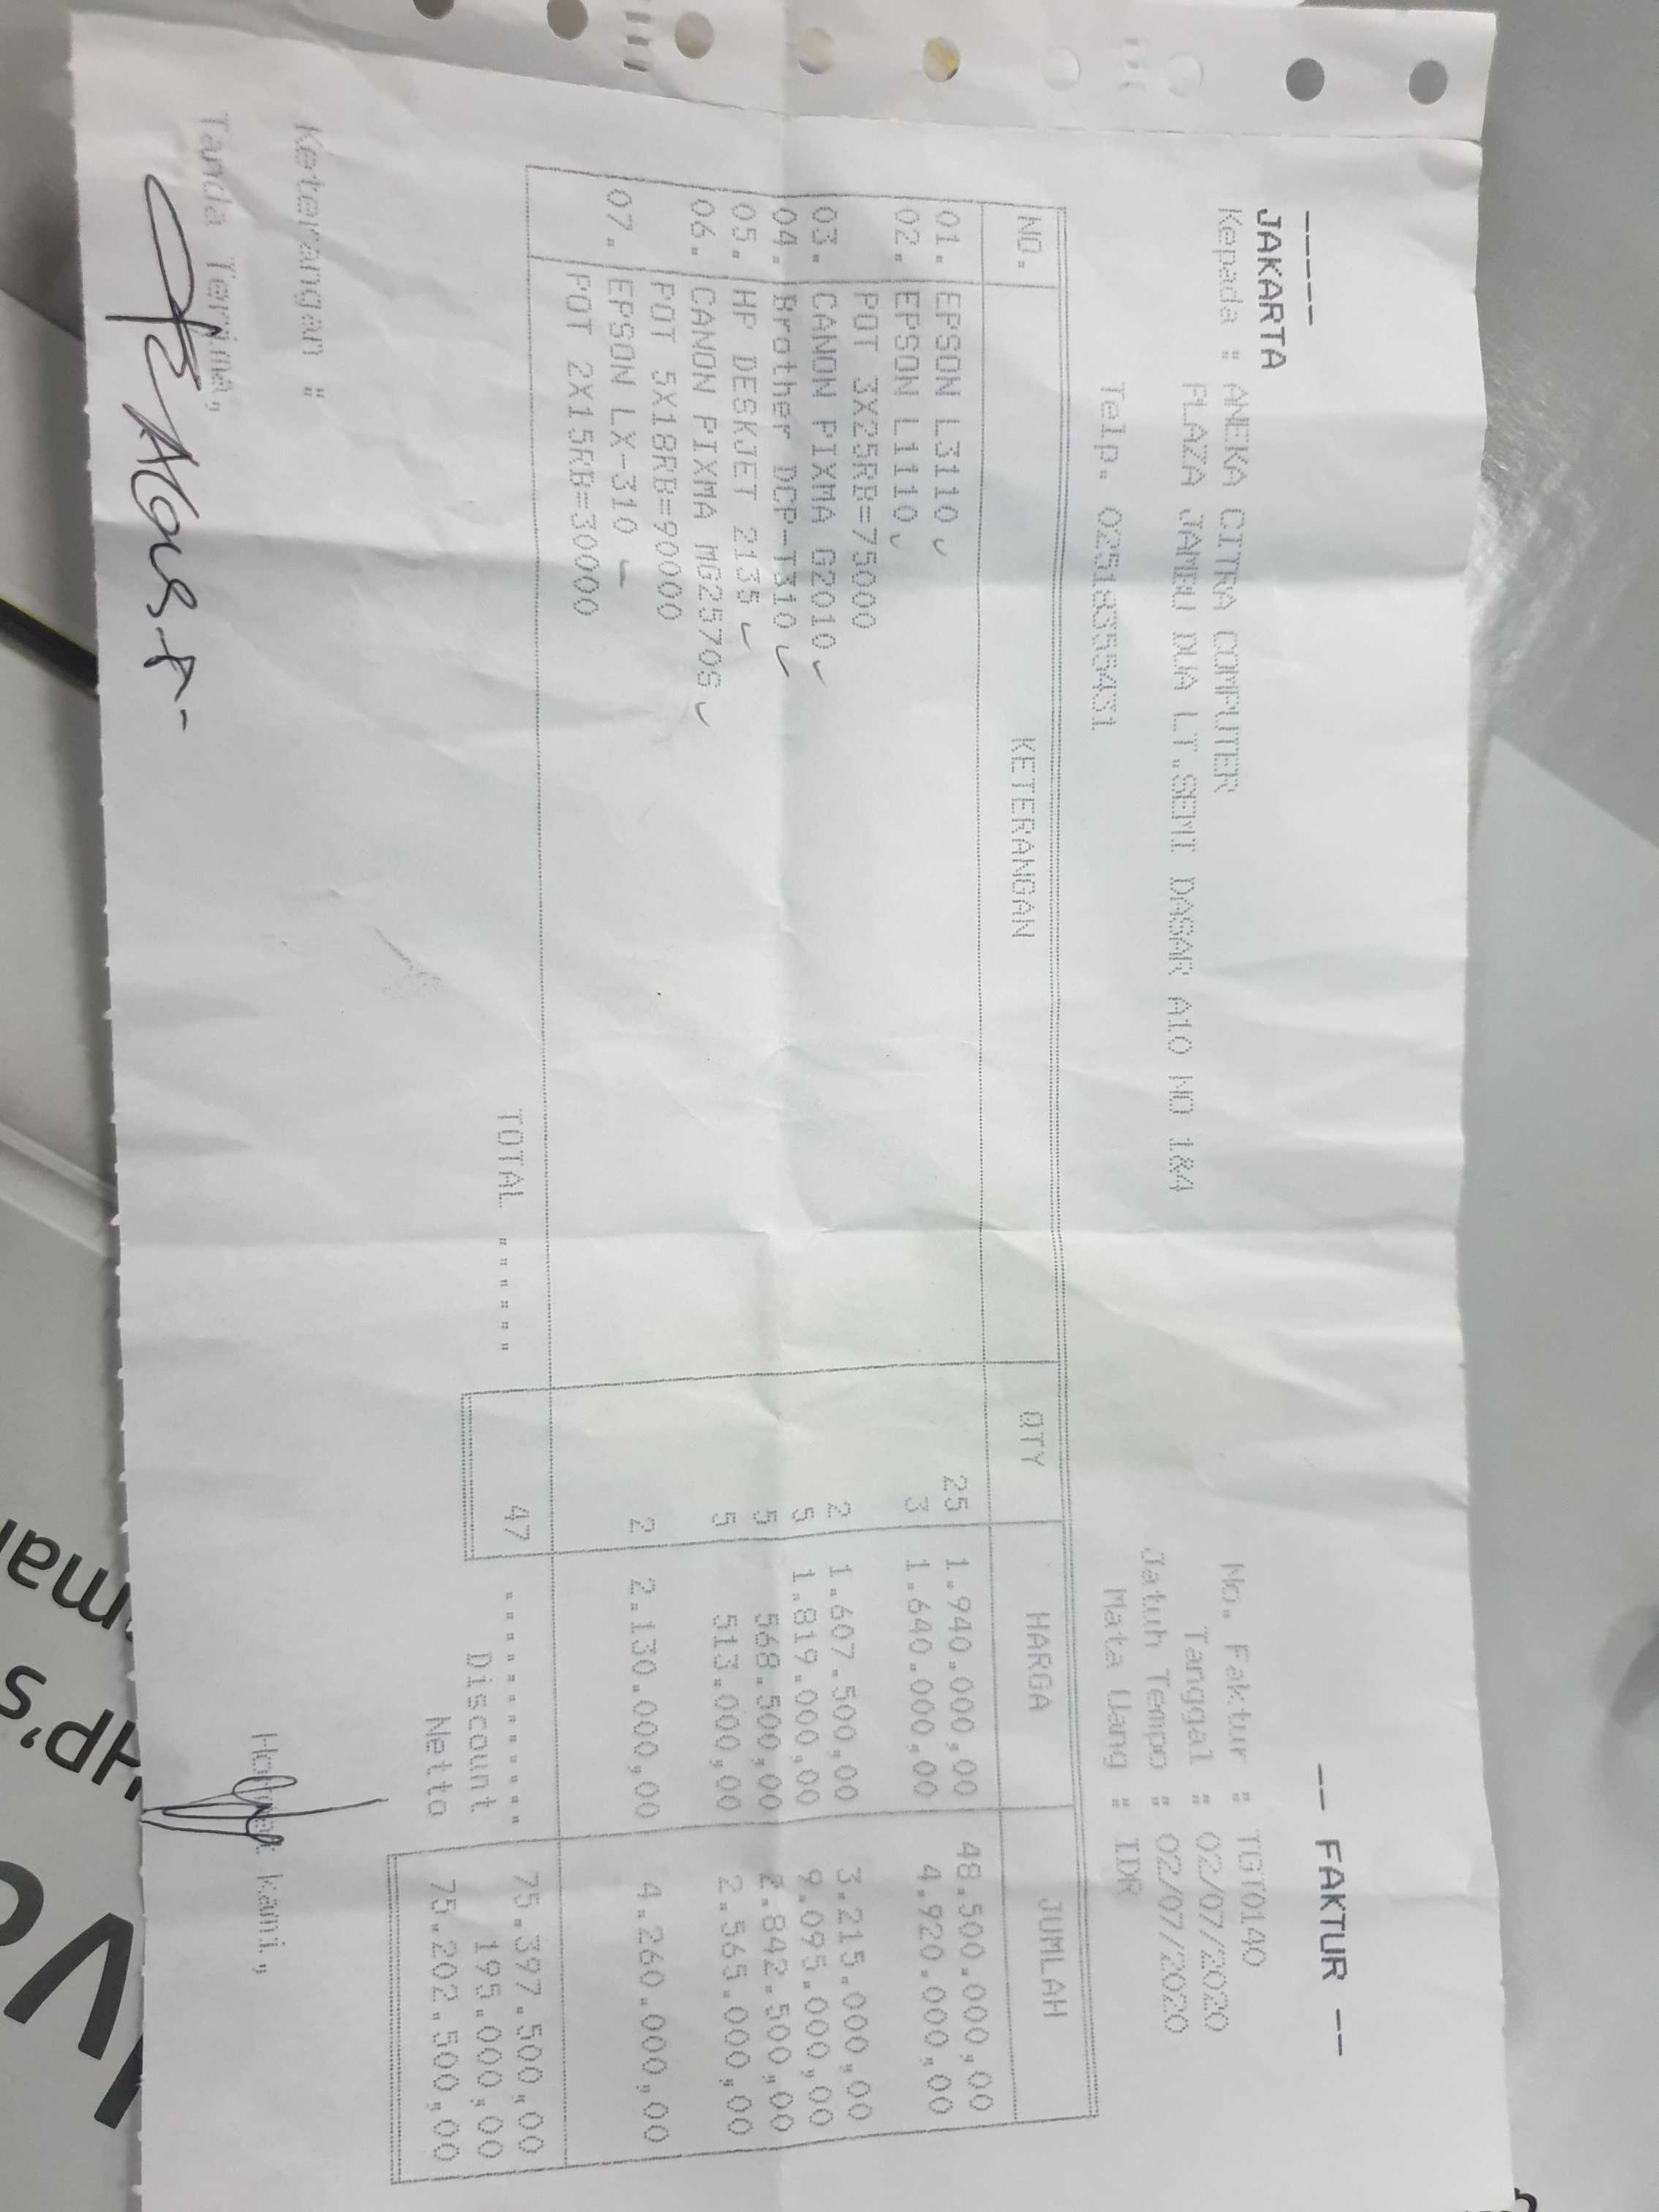 -- FAKTUR --
-----
JAKARTA
Kepada : ANEKA CITRA COMPUTER
PLAZA JAMBU DUA LT.SEMI DASAR A10 NO 1&4
Telp. 02518355431
No. Faktur : TGT0140
Tanggal : 02/07/2020
Jatuh Tempo : 02/07/2020
Mata Uang : IDR
NO. KETERANGAN QTY HARGA JUMLAH
01. EPSON L3110 25 1.940.000,00 48.500.000,00
02. EPSON L1110 3 1.640.000,00 4.920.000,00
POT 3X25RB=75000
03. CANON PIXMA G2010 2 1.607.500,00 3.215.000,00
04. Brother DCP-T310 5 1.819.000,00 9.095.000,00
05. HP DESKJET 2135 5 568.500,00 2.842.500,00
06. CANON PIXMA MG2570S 5 513.000,00 2.565.000,00
POT 5X18RB=90000
07. EPSON LX-310 2 2.130.000,00 4.260.000,00
POT 2X15RB=30000
TOTAL ...... 47 ........... 75.397.500,00
Discount 195.000,00
Netto 75.202.500,00
Keterangan :
Tanda Terima,
Hormat kami,
HP's